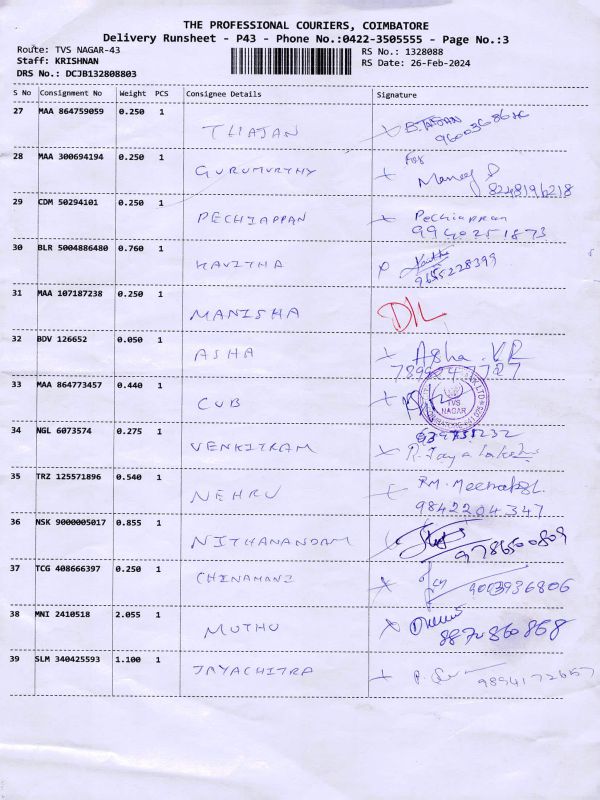 THE PROFESSIONAL COURIERS, COIMBATORE
Delivery Runsheet - P43 - Phone No.:0422-3505555 - Page No.:3
Route: TVS NAGAR-43
RS No.: 1328088
Staff: KRISHNAN
RS Date: 26-Feb-2024
DRS No.: DCJB132808803
S No Consignment No Weight PCS Consignee Details Signature
27 MAA 864759059 0.250 1
THAJAN
28 MAA 300694194 0.250 1 For
GURUMURTHY
8248196218
29 CDM 50294101 0.250 1
PECHIAPPAN Pechiappan
9940251873
30 BLR 5004886480 0.760 1
KAVITHA
9655228399
31 MAA 107187238 0.250 1
MANISHA D/L
32 BDV 126652 0.050 1
ASHA Asha .V.R
33 MAA 864773457 0.440 1
CUB TVS NAGAR
34 NGL 6073574 0.275 1
VENKITRAM R. Jayalakshmi
35 TRZ 125571896 0.540 1
NEHRU RM. Meenakshi
9842204347
36 NSK 9000005017 0.855 1
NITHANANDAM
37 TCG 408666397 0.250 1
CHINAMANI 9003936806
38 MNI 2410518 2.055 1
MUTHU
8870860868
39 SLM 340425593 1.100 1
JAYACHITRA 9894172657